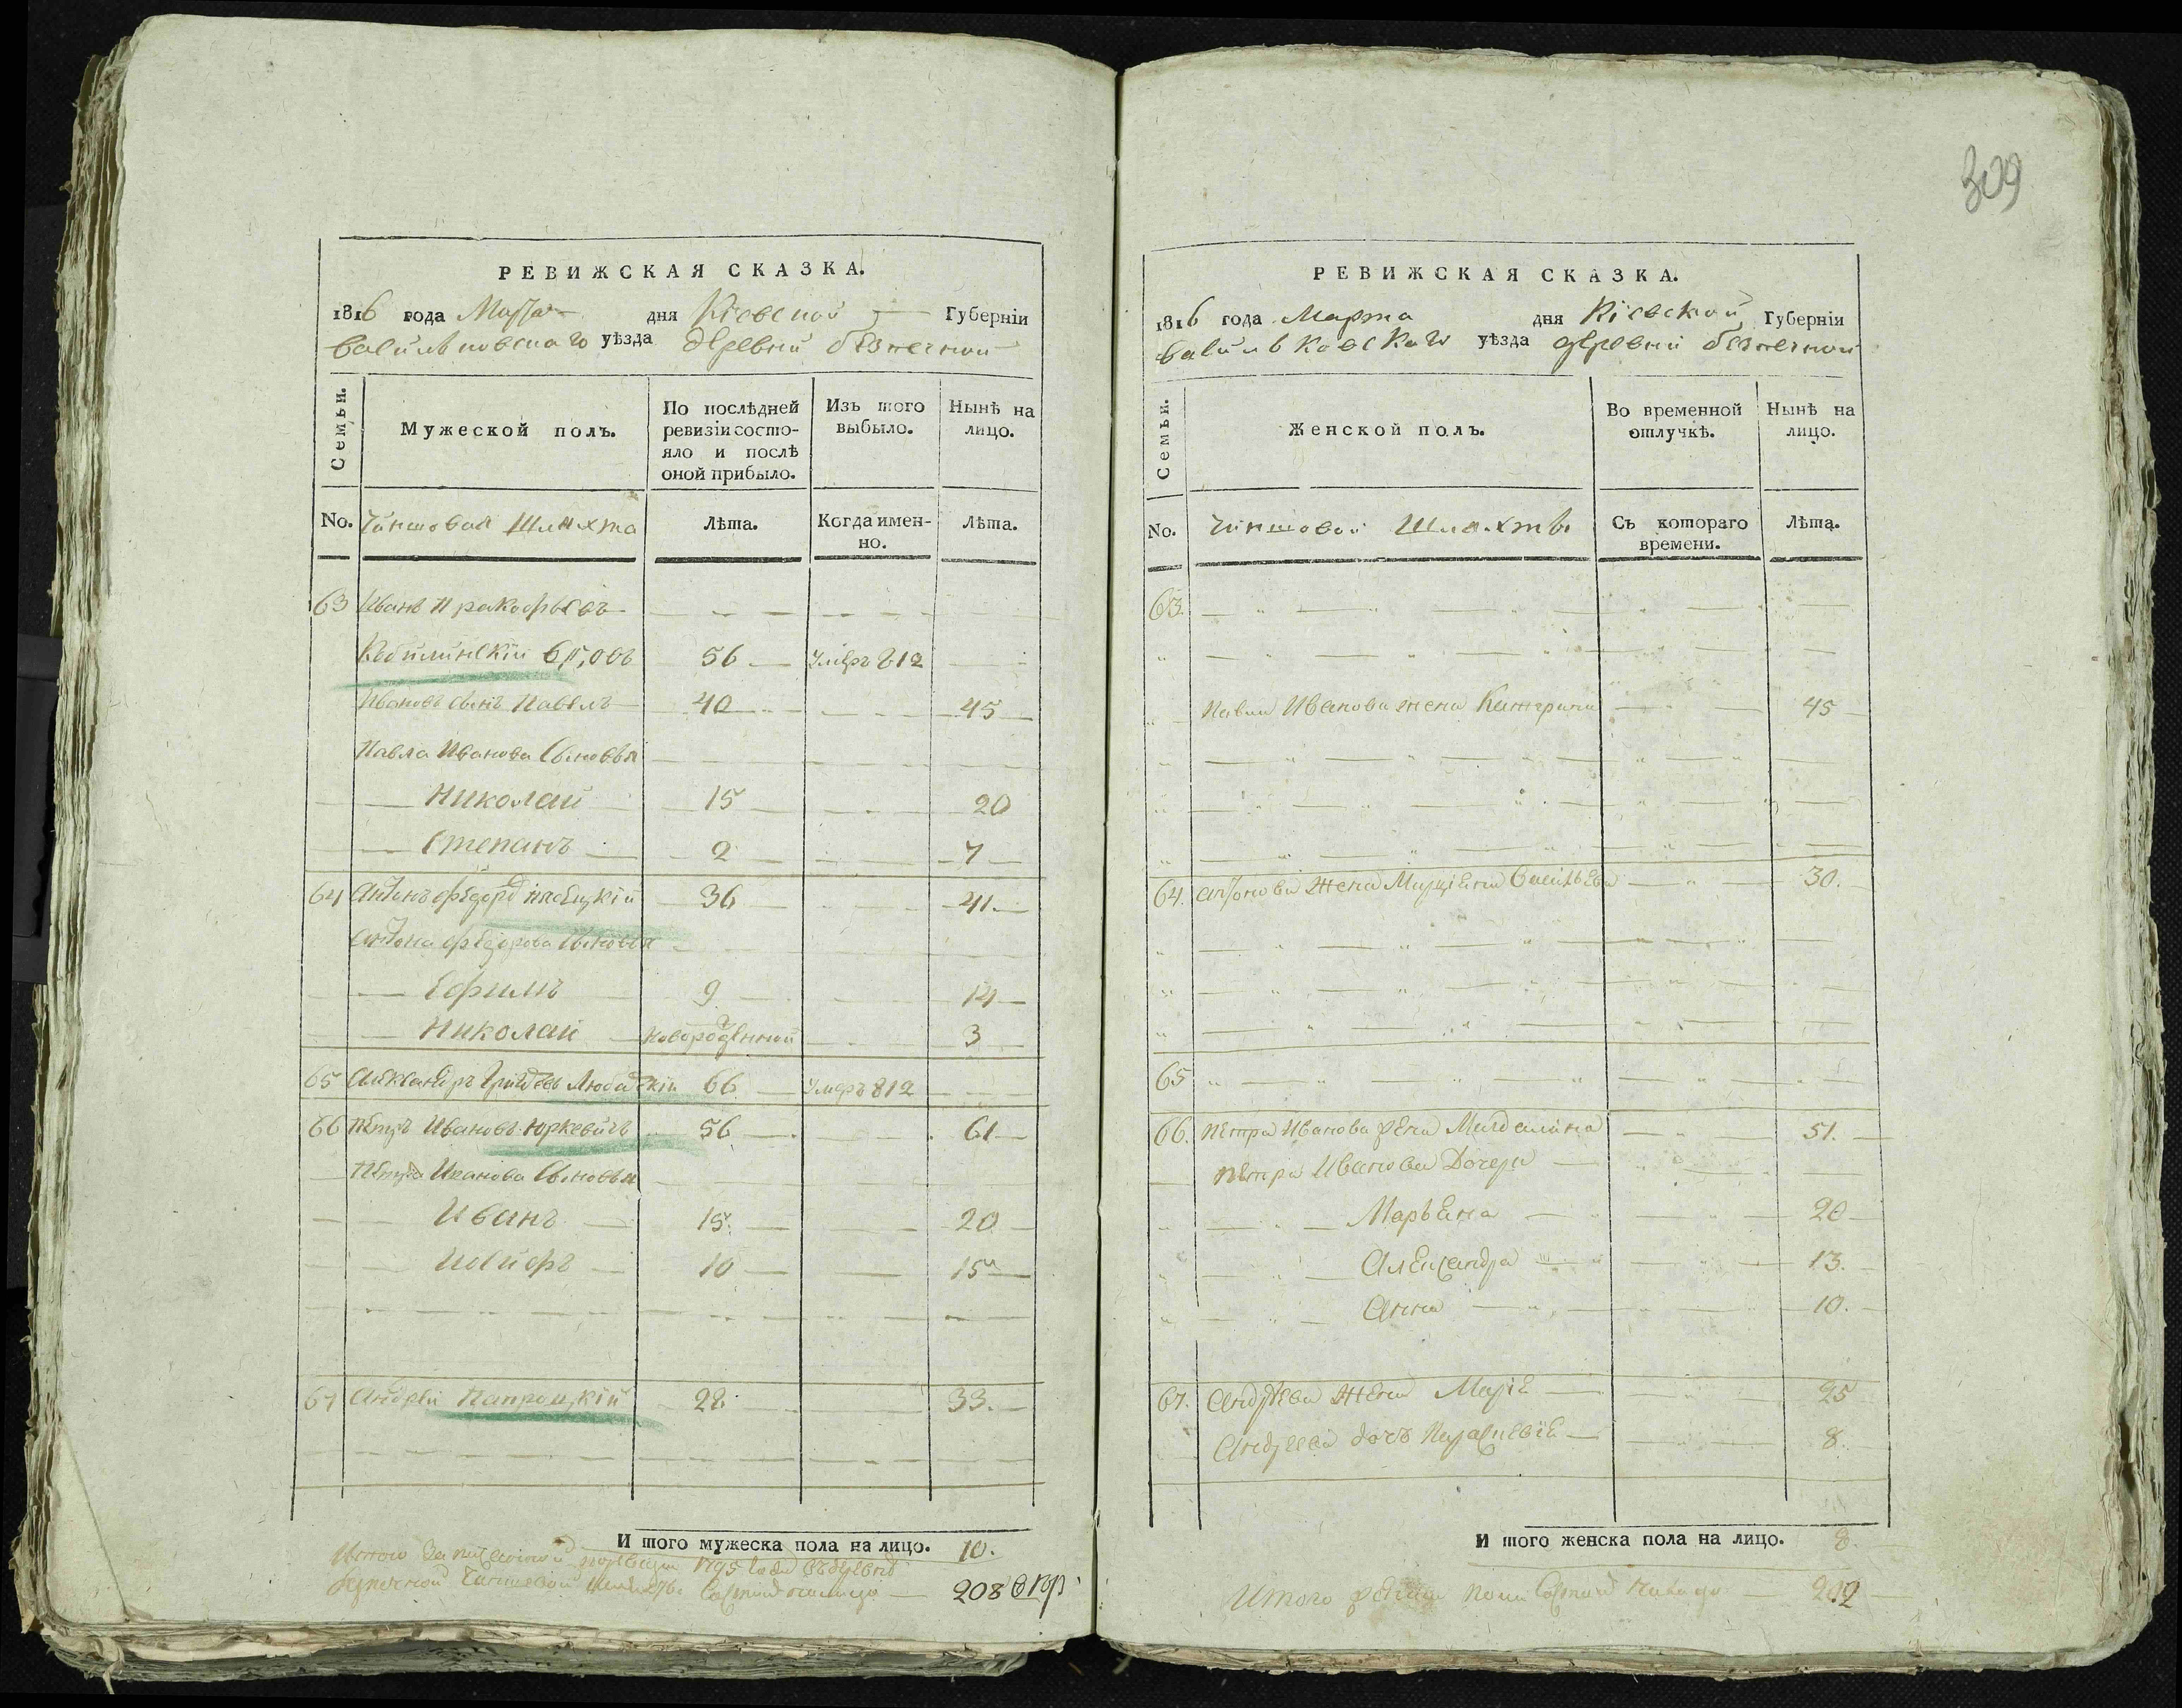 309
РЕВИЖСКАЯ СКАЗКА.
1816 года Марта дня Кіевской Губерніи
Васильковскаго уѣзда деревни безпечной
Семьи.
Мужеской полъ.
По послѣдней ревизіи состояло и послѣ оной прибыло.
Изъ того выбыло.
Нынѣ на лицо.
No. Чиншовая Шляхта
Лѣта.
Когда именно.
Лѣта.
63 Иванъ Пракофьевъ
56 Умеръ 812
Ивановъ сынъ Павелъ 40 45
Павла Иванова Сыновья
Николай 15 20
Степанъ 2 7
64 Антонъ Федоровъ 36 41
Антона Федорова Сыновья
Ефимъ 9 14
Николай новорожденной 3
65 Александръ 66 Умеръ 812
66 Петръ Ивановъ Юркевичъ 56 61
Петра Иванова Сыновья
Иванъ 15 20
Иосифъ 10 15
67 Андрей Папроцкій 28 33
И того мужеска пола на лицо. 10.
1795 года
Чиншевой 208
РЕВИЖСКАЯ СКАЗКА.
1816 года Марта дня Кіевской Губерніи
Васильковскаго уѣзда деревни безпечной
Семьи.
Женской полъ.
Во временной отлучкѣ.
Нынѣ на лицо.
No. Чиншовой Шляхты
Съ котораго времени.
Лѣта.
63.
Павла Иванова жена Катерина 45
64. Антонова Жена 30.
65
66. Петра Иванова жена Магдалина 51.
Петра Иванова Дочери
Марьена 20
Александра 13.
Анна 10.
67. Андреева жена Маріе 25
Андреева дочь Параскевіе 8.
И того женска пола на лицо. 8.
Итого 202